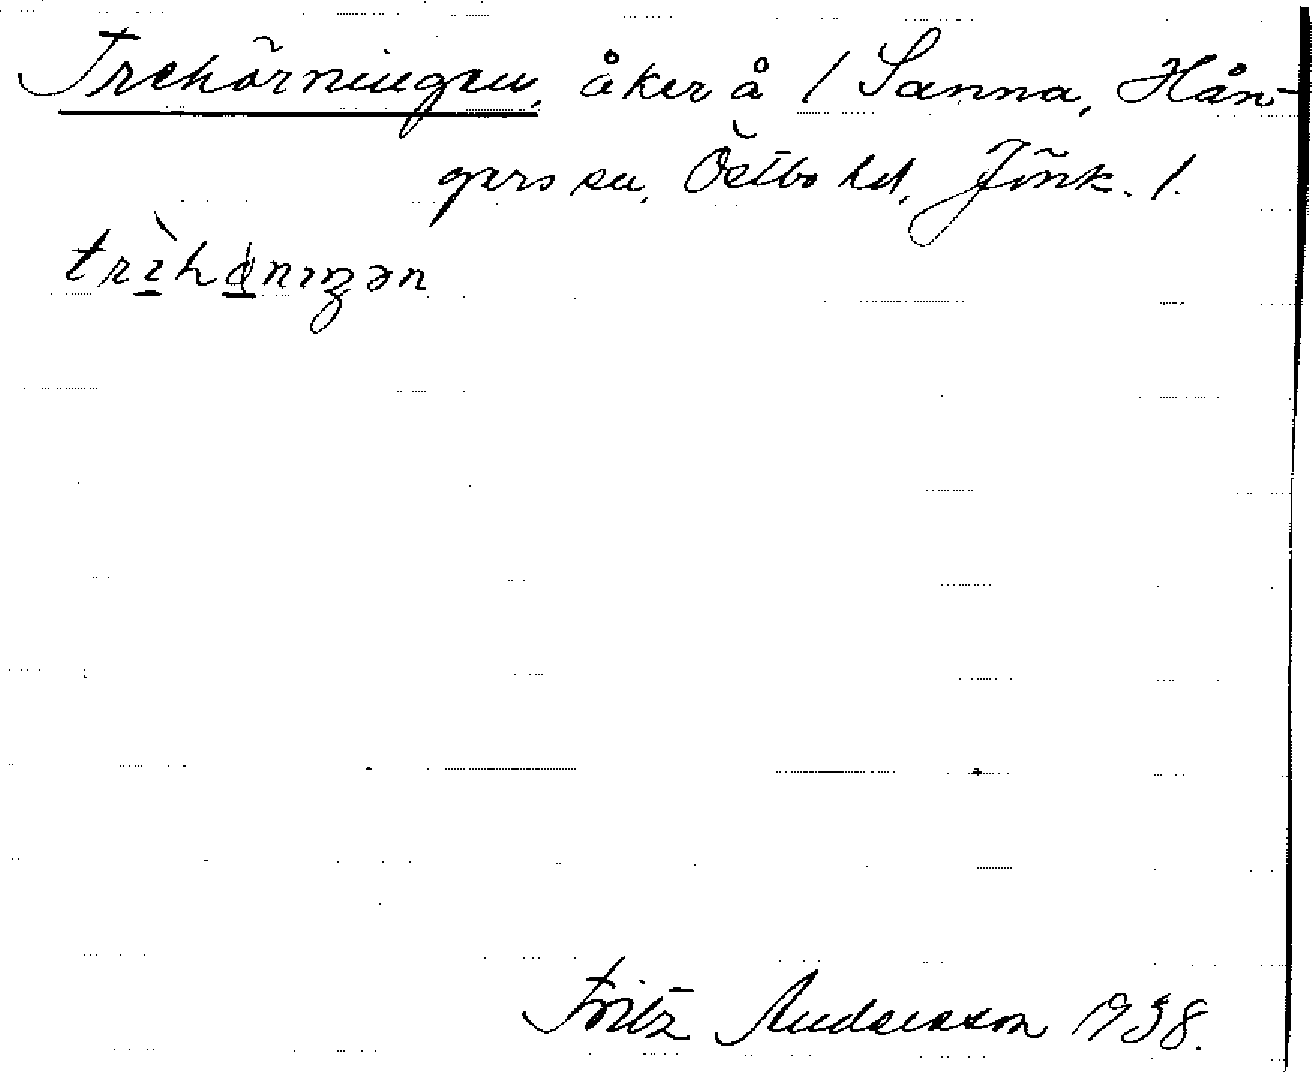 Trehörningen, åker å 1 Sanna, Hån-
gers sn, Östbo hd, Jönk. l.
trìhøṇıŋən
Fritz Andersson 1938.